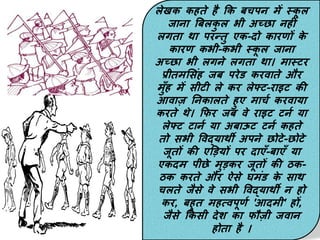 लेखक कहते है कि बचपन में स्कूल
जाना बिलकुल भी अच्छा नहीं
लगता था परन्तु एक-दो कारणों के
कारण कभी-कभी स्कूल जाना
अच्छा भी लगने लगता था। मास्टर
प्रीतमसिंह जब परेड करवाते और
मुँह में सीटी ले कर लेफ्ट-राइट की
आवाज़ निकालते हुए मार्च करवाया
करते थे। फिर जब वे राइट टर्न या
लेफ्ट टार्न या अबाऊट टर्न कहते
तो सभी विद्यार्थी अपने छोटे-छोटे
जूतों की एड़ियों पर दाएँ-बाएँ या
एकदम पीछे मुड़कर जूतों की ठक-
ठक करते और ऐसे घमंड के साथ
चलते जैसे वे सभी विद्यार्थी न हो
कर, बहुत महत्वपूर्ण 'आदमी' हों,
जैसे किसी देश का फौज़ी जवान
होता है ।